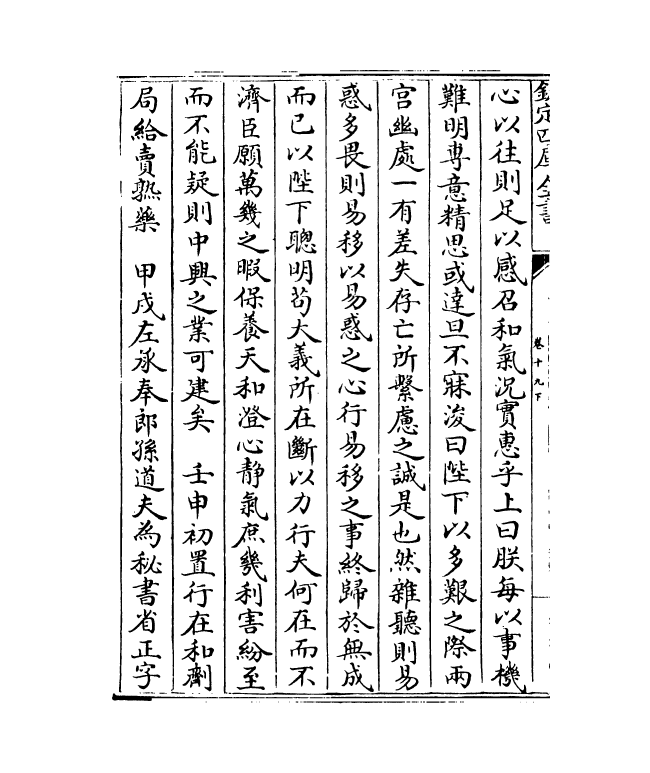 欽定四庫全書
卷十九下
心以往則足以感召和氣况實惠乎上曰朕每以事機
難明專意精思或達旦不寐浚曰陛下以多艱之際兩
宮幽處一有差失存亡所繫慮之誠是也然雜聽則易
惑多畏則易移以易惑之心行易移之事終歸於無成
而已以陛下聰明苟大義所在斷以力行夫何在而不
濟臣願萬幾之暇保養天和澄心静氣庶幾利害紛至
而不能疑則中興之業可建矣　壬申初置行在和劑
局給賣熟藥　甲戌左承奉郎孫道夫為秘書省正字